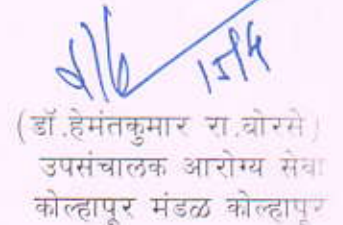 15/4
(डॉ.हेमंतकुमार रा.बोरसे)
उपसंचालक आरोग्य सेवा
कोल्हापूर मंडळ कोल्हापूर